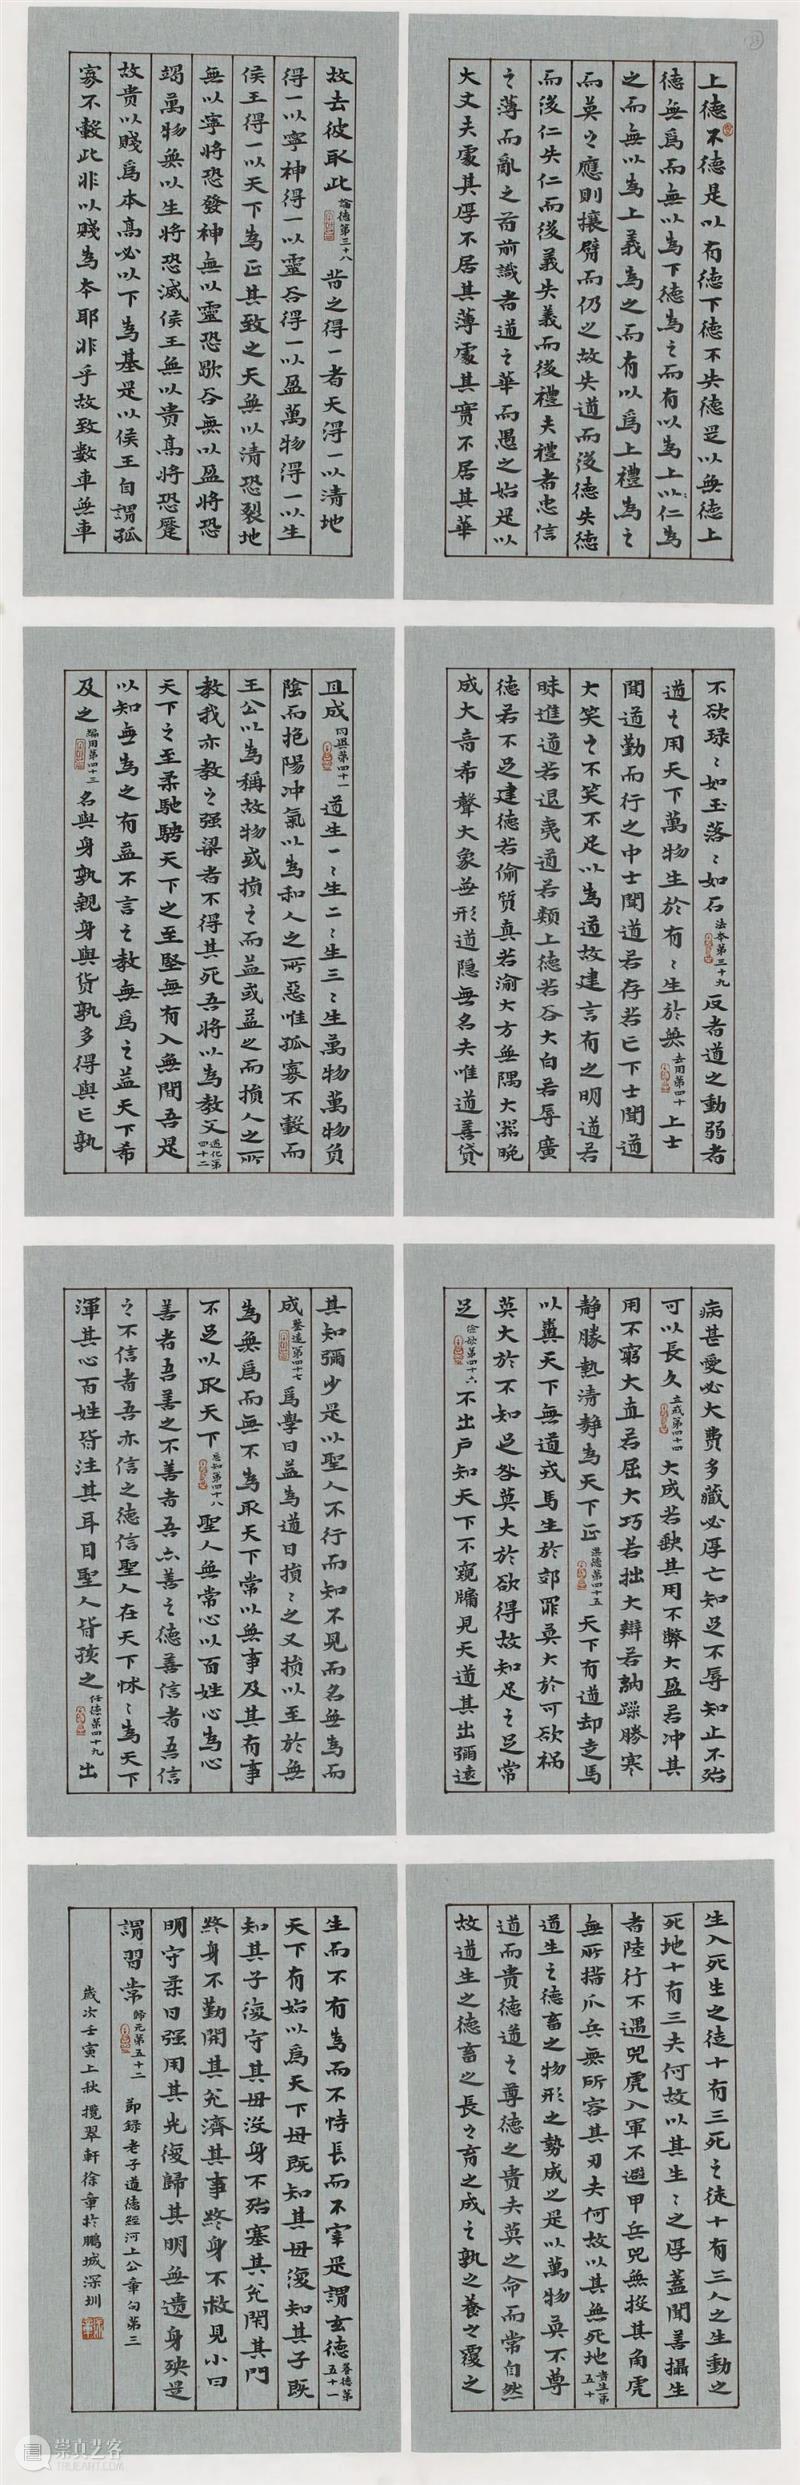 上德不德是以有德下德不失德是以無德上
德無為而無以為下德為之而有以為上以仁為
之而無以為上義為之而有以為上禮為之
而莫之應則攘臂而仍之故失道而後德失德
而後仁失仁而後義失義而後禮夫禮者忠信
之薄而亂之首前識者道之華而愚之始是以
大丈夫處其厚不居其薄處其實不居其華
故去彼取此論德第三十八昔之得一者天得一以清地
得一以寧神得一以靈谷得一以盈萬物得一以生
侯王得一以天下為正其致之天無以清恐裂地
無以寧將恐發神無以靈恐歇谷無以盈將恐
竭萬物無以生將恐滅侯王無以貴高將恐蹷
故貴以賤為本高必以下為基是以侯王自謂孤
寡不轂此非以賤為本耶非乎故致數車無車
不欲琭〻如玉落〻如石法本第三十九反者道之動弱者
道之用天下萬物生於有〻生於無去用第四十上士
聞道勤而行之中士聞道若存若亡下士聞道
大笑之不笑不足以為道故建言有之明道若
昧進道若退夷道若類上德若谷大白若辱廣
德若不足建德若偷質真若渝大方無隅大器晚
成大音希聲大象無形道隱無名夫唯道善貸
且成同異第四十一道生一〻生二〻生三〻生萬物萬物負
陰而抱陽冲氣以為和人之所惡唯孤寡不轂而
王公以為稱故物或損之而益或益之而損人之所
教我亦教之强梁者不得其死吾將以為教父道化第四十二
天下之至柔馳騁天下之至堅無有入無間吾是
以知無為之有益不言之教無為之益天下希
及之徧用第四十三名與身孰親身與貨孰多得與亡孰
病甚愛必大費多藏必厚亡知足不辱知止不殆
可以長久立戒第四十四大成若缺其用不弊大盈若冲其
用不窮大直若屈大巧若拙大辯若訥躁勝寒
靜勝熱清靜為天下正洪德第四十五天下有道却走馬
以糞天下無道戎馬生於郊罪莫大於可欲禍
莫大於不知足咎莫大於欲得故知足之足常
足儉欲第四十六不出戶知天下不窺牖見天道其出彌遠
其知彌少是以聖人不行而知不見而名無為而
成鑒遠第四十七為學日益為道日損〻之又損以至於無
為無為而無不為取天下常以無事及其有事
不足以取天下忘知第四十八聖人無常心以百姓心為心
善者吾善之不善者吾亦善之德善信者吾信
之不信者吾亦信之德信聖人在天下怵〻為天下
渾其心百姓皆注其耳目聖人皆孩之任德第四十九出
生入死生之徒十有三死之徒十有三人之生動之
死地十有三夫何故以其生〻之厚蓋聞善攝生
者陸行不遇兕虎入軍不避甲兵兕無投其角虎
無所措爪兵無所容其刃夫何故以其無死地貴生第五十
道生之德畜之物形之勢成之是以萬物莫不尊
道而貴德道之尊德之貴夫莫之命而常自然
故道生之德畜之長之育之成之孰之養之覆之
生而不有為而不恃長而不宰是謂玄德養德第五十一
天下有始以為天下母既知其母復知其子既
知其子復守其母沒身不殆塞其兌閉其門
終身不勤開其兌濟其事終身不救見小曰
明守柔曰强用其光復歸其明無遺身殃是
謂習常歸元第五十二 節錄老子道德經河上公章句第三
歲次壬寅上秋攬翠軒徐章於鵬城深圳
崇真艺客